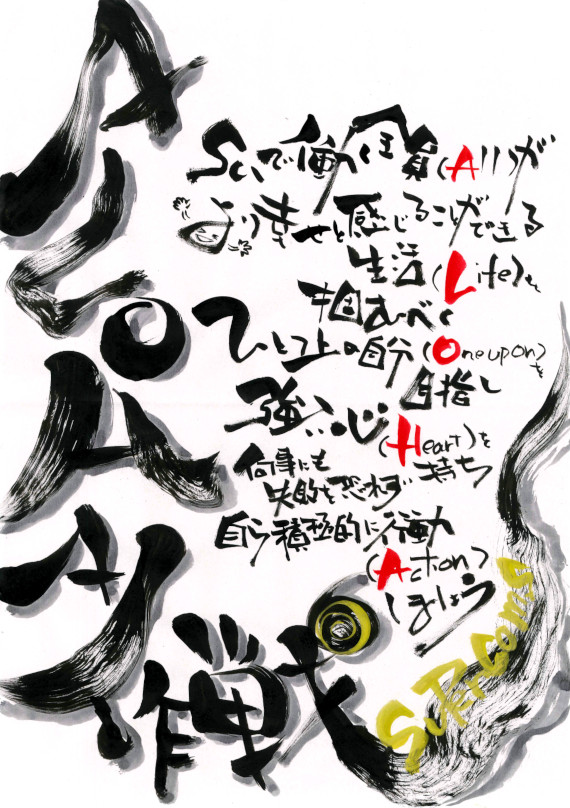 ALOHA作戦
SCIで働く全員(All)が
より幸せと感じることができる
生活(Life)を
むべく
ひとつ上の自分(One upon)を
目指し
強い心(Heart)を
持ち
何事にも
失敗を恐れず
自ら積極的に行動
(Action)
しましょう